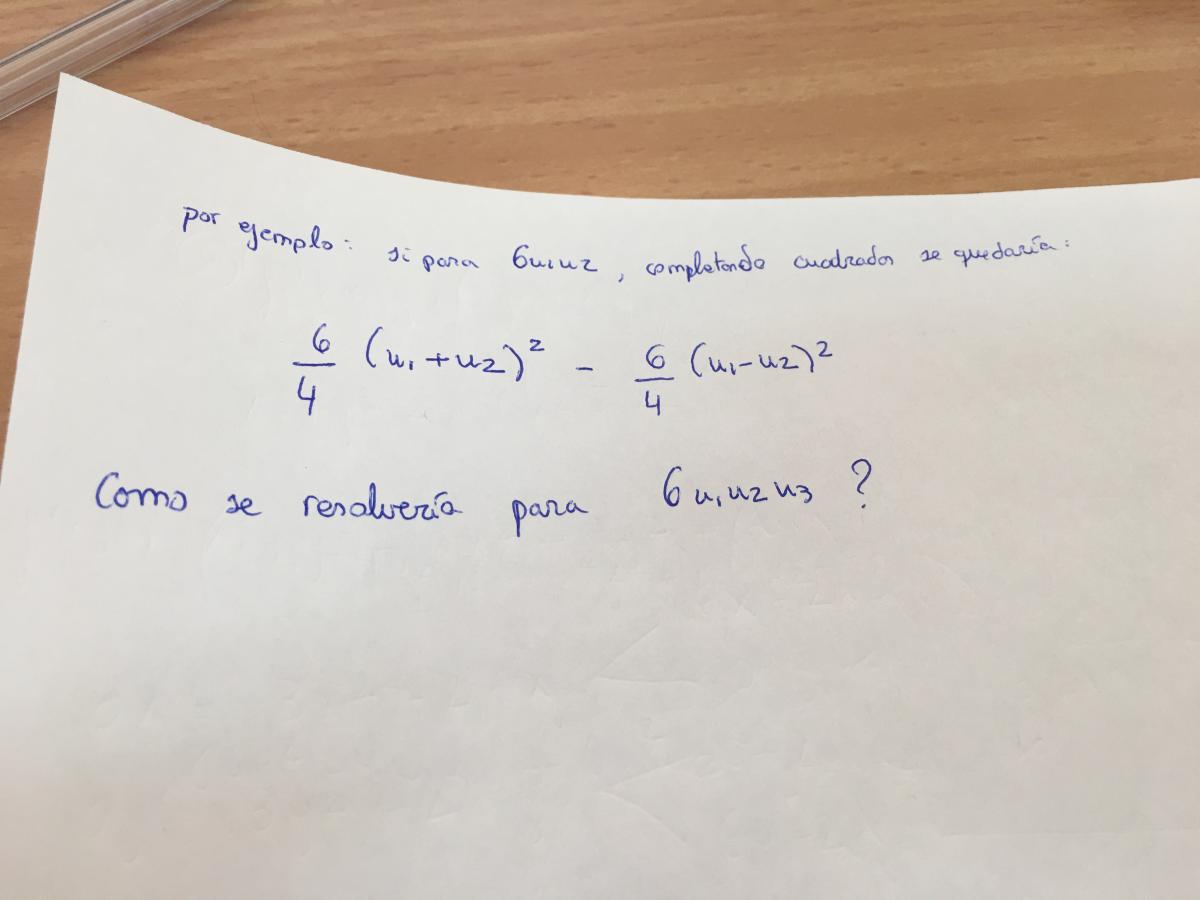 por ejemplo: si para 6u₁u₂, completando cuadrados se quedaría:
6/4 (u₁+u₂)² - 6/4 (u₁-u₂)²
Como se resolvería para 6u₁u₂u₃?